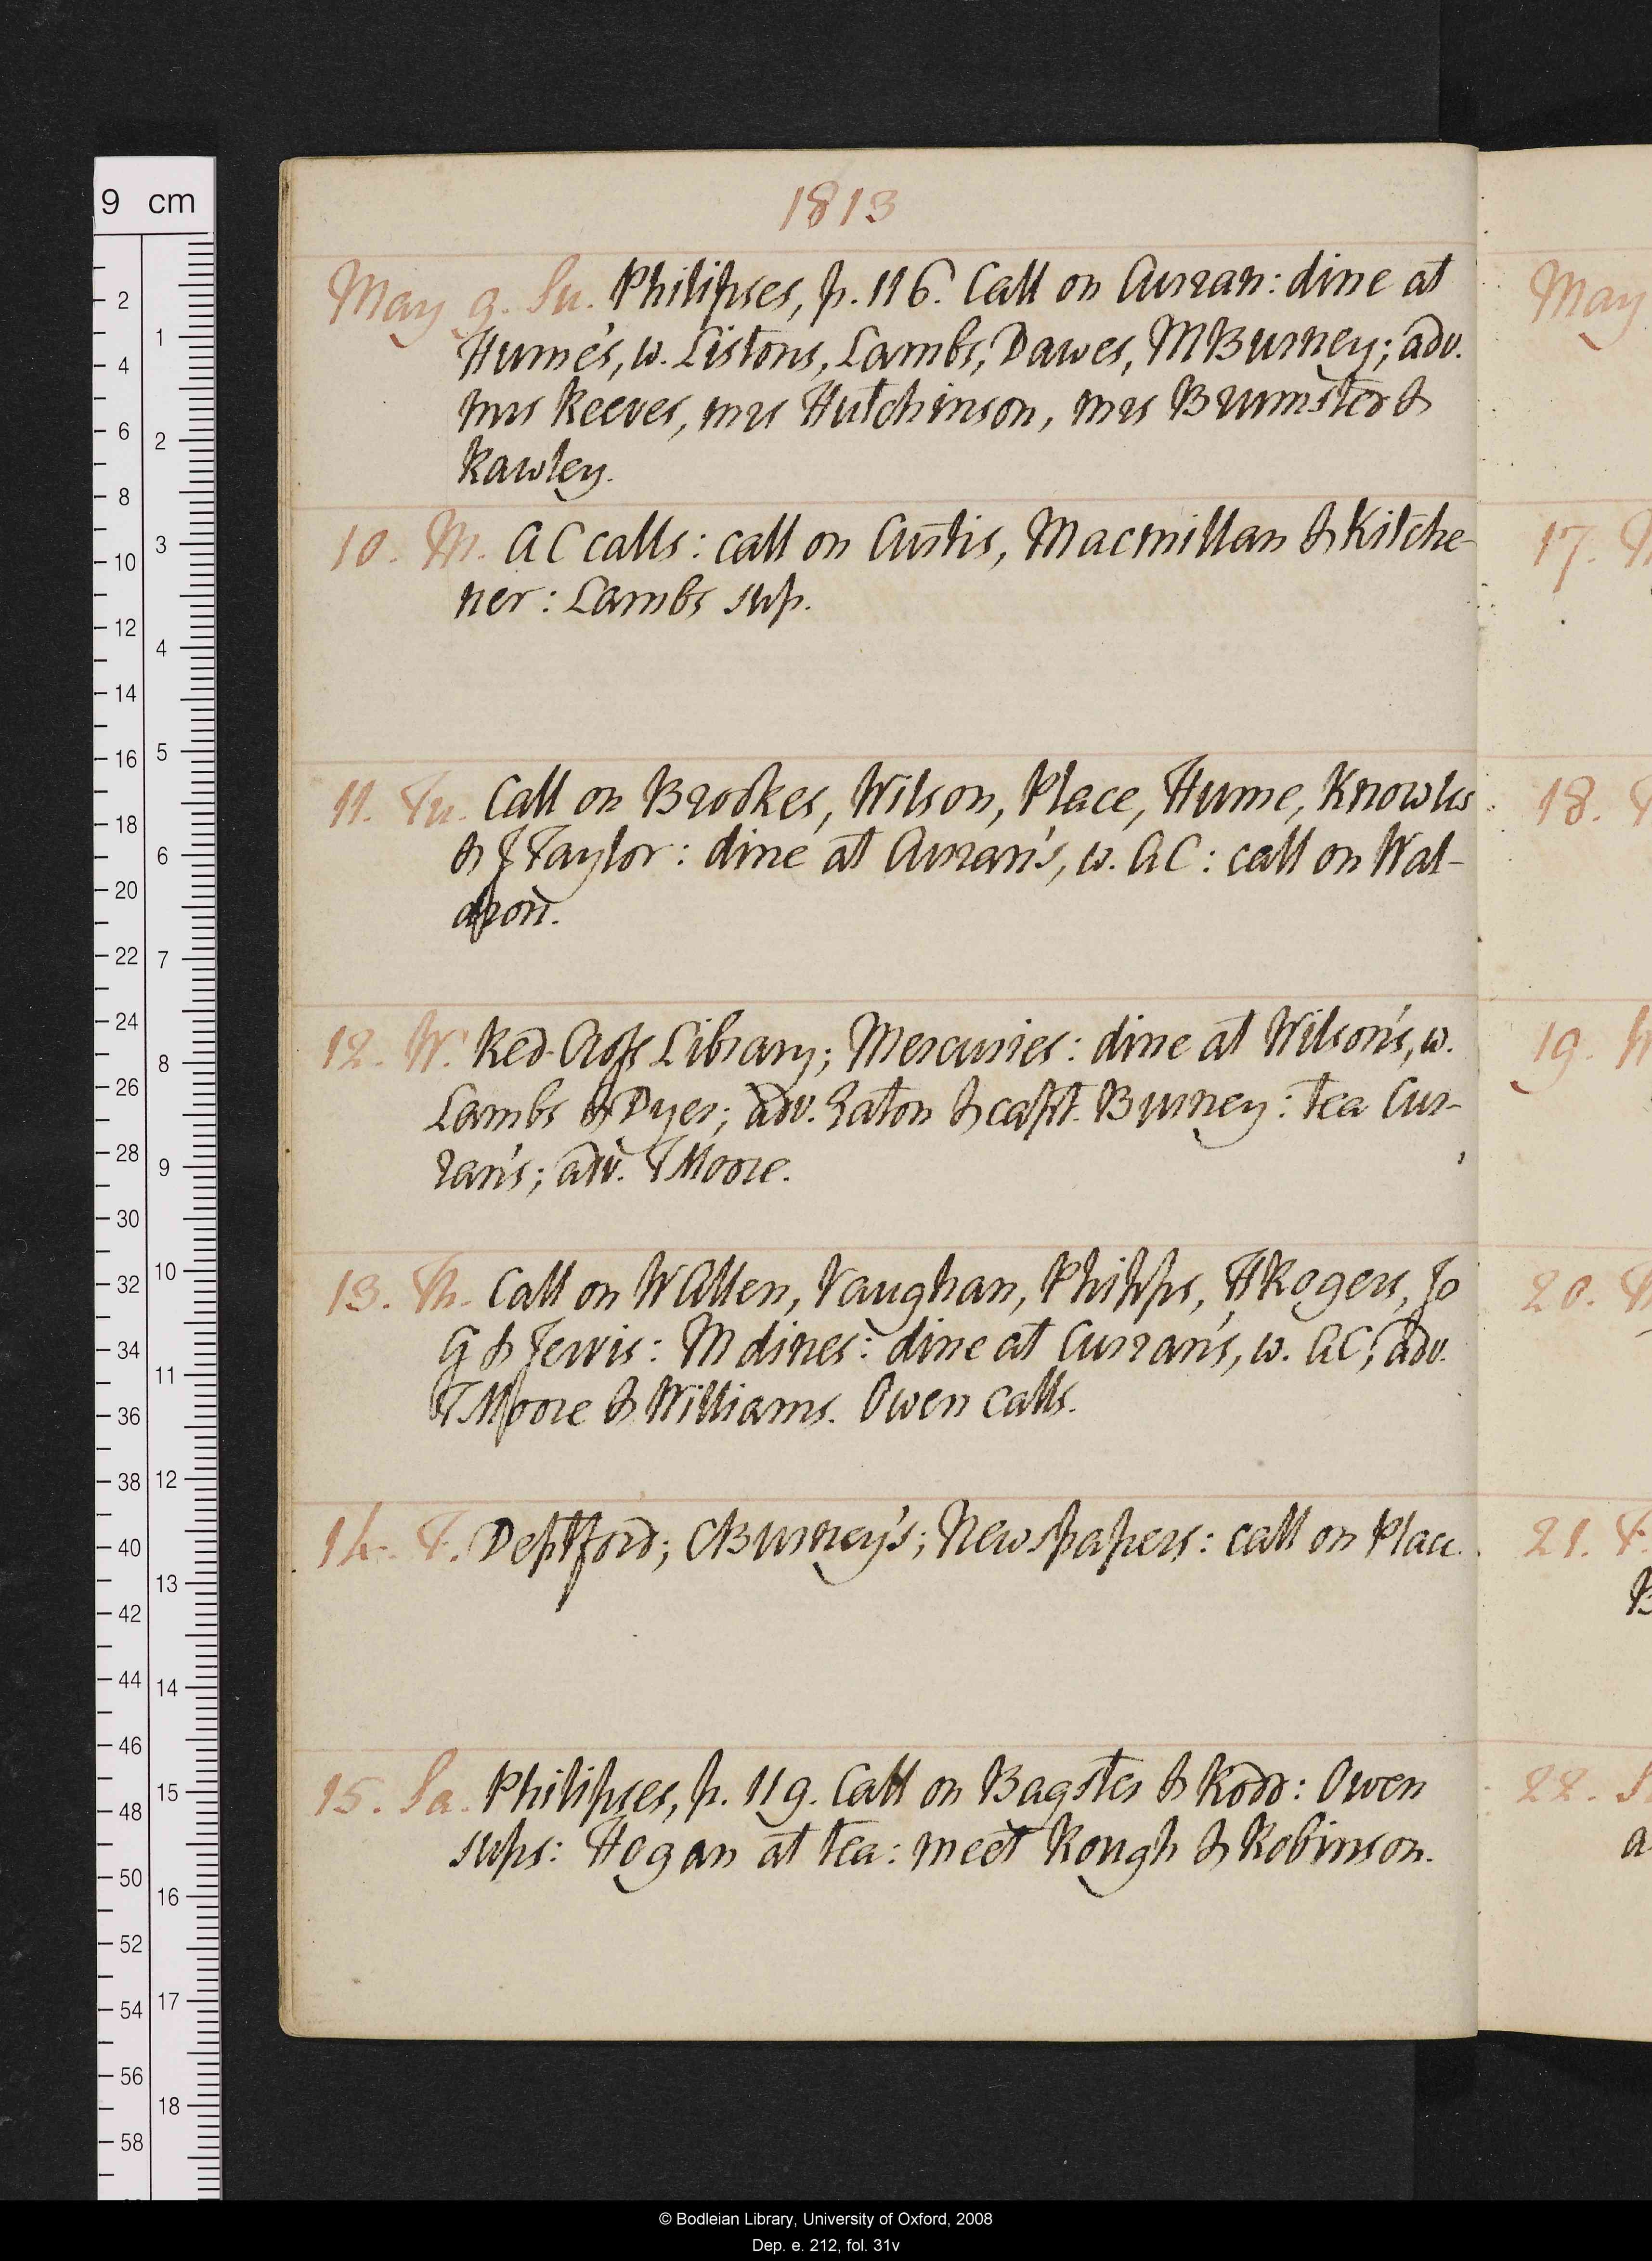 1813
May 9. Su. Philipses, p. 116. Call on Curran: dine at
Hume's, w. Listons, Lambs, Dawes, MBurney; adv.
mrs Reeves, mrs Hutchinson, mrs Brumsted &
Rawley.
10. M. AC calls: call on Curtis, Macmillan & Kitche-
ner: Lambs sup.
11. Tu. Call on Brookes, Wilson, Place, Hume, Knowles
& J Taylor: dine at Curran's, w. AC: call on Wal-
dron.
12. W. Red-Cross Library; Mercuries: dine at Wilson's, w.
Lambs & Dyer; adv. Eaton & capt. Burney: tea Cur-
ran's; adv. TMoore.
13. Th. Call on WAllen, Vaughan, Phipps, HRogers, Jo
G & Jervis: M dines: dine at Curran's, w. AC; adv.
TMoore & Williams. Owen calls.
14. F. Deptford; CBurney's; Newspapers: call on Place.
15. Sa. Philipses, p. 119. Call on Bagster & Rodd: Owen
sups: Hogan at tea: meet Rough & Robinson.
May
17.
18.
19.
20.
21. F.
22.
9 cm
2
4
6
8
10
12
14
16
18
20
22
24
26
28
30
32
34
36
38
40
42
44
46
48
50
52
54
56
58
1
2
3
4
5
6
7
8
9
10
11
12
13
14
15
16
17
18
© Bodleian Library, University of Oxford, 2008
Dep. e. 212, fol. 31v